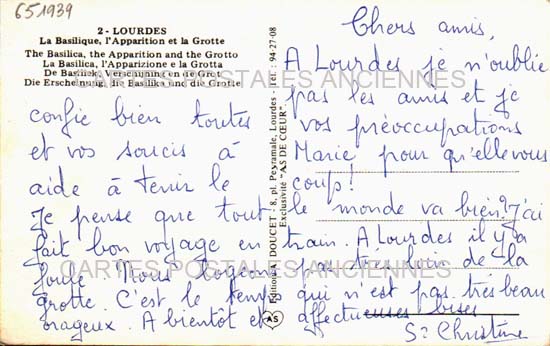 651939
2 - LOURDES
La Basilique, l'Apparition et la Grotte
The Basilica, the Apparition and the Grotto
La Basilica, l'Apparizione e la Grotta
De Basiliek, Verschijning en de Grot
Die Erscheinung, die Basilika und die Grotte
CARTES POSTALES ANCIENNES
Chers amis,
A Lourdes je n'oublie
pas les amis et je
confie bien toutes
vos préoccupations
et vos soucis à
Marie pour qu'elle vous
aide à tenir le
coup!
Je pense que tout
le monde va bien? J'ai
fait bon voyage en
train. A Lourdes il y a
foule Nous logeons
pas très loin de la
grotte. C'est le temps
qui n'est pas très beau
orageux. A bientôt et
affectueuses bises
Sr Christine
CARTES POSTALES ANCIENNES
Editions A. DOUCET - 8, pl. Peyramale, Lourdes - Tél. : 94-27-08
Exclusivité "AS DE CŒUR"
AS